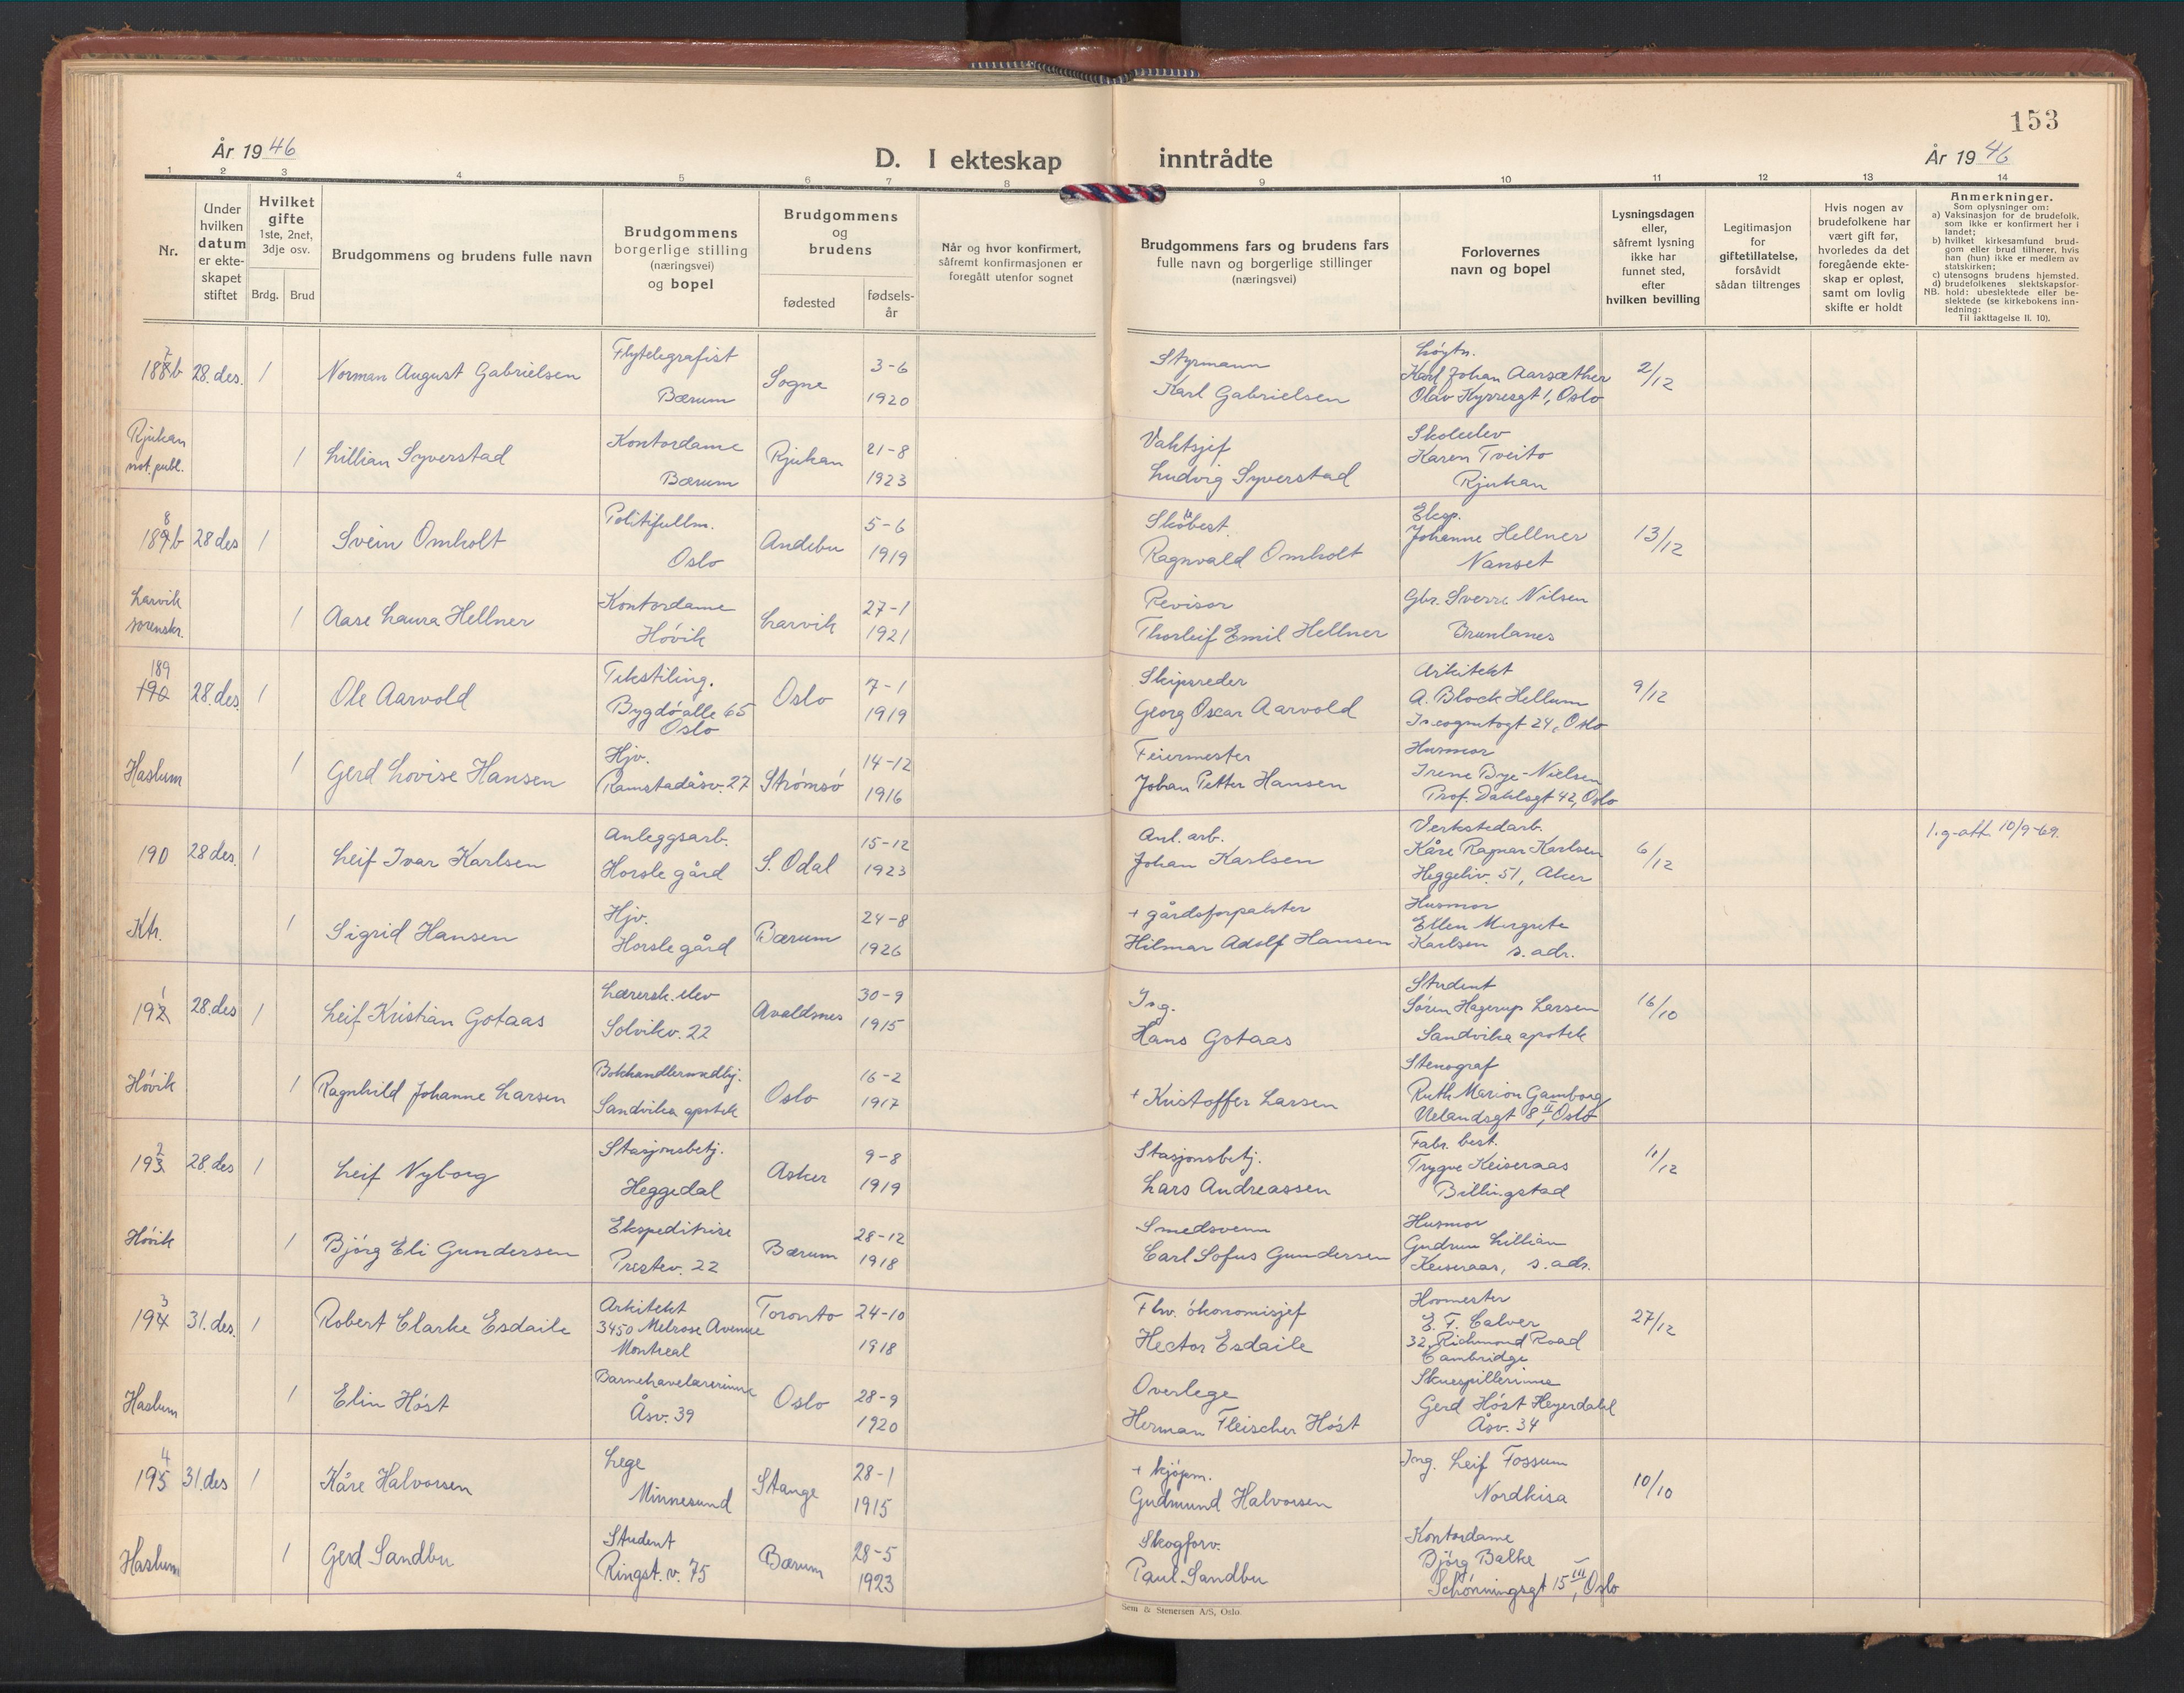 153
År 1946
D. I ekteskap inntrådte
År 1946
1 2 3 4 5 6 7 8 9 10 11 12 13 14
Nr.
Under hvilken datum er ekte-skapet stiftet
Hvilket gifte 1ste, 2net, 3dje osv.
Brdg. Brud
Brudgommens og brudens fulle navn
Brudgommens borgerlige stilling (næringsvei) og bopel
Brudgommens og brudens
fødested
fødsels-år
Når og hvor konfirmert, såfremt konfirmasjonen er foregått utenfor sognet
Brudgommens fars og brudens fars fulle navn og borgerlige stillinger (næringsvei)
Forlovernes navn og bopel
Lysningsdagen eller, såfremt lysning ikke har funnet sted, efter hvilken bevilling
Legitimasjon for giftetillatelse, forsåvidt sådan tiltrenges
Hvis nogen av brudefolkene har vært gift før, hvorledes da det foregående ekte-skap er opløst, samt om lovlig skifte er holdt
Anmerkninger.
Som oplysninger om:
a) Vaksinasjon for de brudefolk, som ikke er konfirmert her i landet;
b) hvilket kirkesamfund brud-gom eller brud tilhører, hvis han (hun) ikke er medlem av statskirken;
c) utensogns brudens hjemsted.
d) brudefolkenes slektskapsfor-hold: ubeslektede eller be-slektede (se kirkebokens inn-ledning:
NB. Til iakttagelse II. 10).
187b 28. des. 1 Norman August Gabrielsen Flytelegrafist Bærum Sogne 3-6 1920 Styrmann Karl Gabrielsen Løytn. Karl Johan Aarsæther Olav Kyrresgt 1, Oslo 2/12
Rjukan not. publ. 1 Lillian Syverstad Kontordame Bærum Rjukan 21-8 1923 Vaktsjef Ludvig Syverstad Skoleelev Karen Tveito Rjukan
188b 28 des 1 Svein Omholt Politifullm. Oslo Andebu 5-6 1919 Ragnvald Omholt Eksp. Johanne Hellner Nanset 13/12
Larvik sorenskr. 1 Aase Laura Hellner Kontordame Høvik Larvik 27-1 1921 Revisor Thorleif Emil Hellner Gbr. Sverre Nilsen Brunlanes
189 190 28. des. 1 Ole Aarvold Tekstiling. Bygdøalle 65 Oslo Oslo 7-1 1919 Skipsreder Georg Oscar Aarvold Arkitekt A. Block Hellum 24, Oslo 9/12
Haslum 1 Gerd Lovise Hansen Hjv. Ramstadåsv. 27 Strømsø 14-12 1916 Feiermester Johan Petter Hansen Husmor Irene Bye-Nielsen Prof. Dahlsgt 42, Oslo
190 28 des. 1 Leif Ivar Karlsen Anleggsarb. Horsle gård S. Odal 15-12 1923 Anl. arb. Johan Karlsen Verkstedarb. Kåre Ragnar Karlsen Heggeliv. 51, Aker 6/12 1.g-att 10/9-69.
Ktr. 1 Sigrid Hansen Hjv. Horsle gård Bærum 24-8 1926 + gårdsforpakter Hilmar Adolf Hansen Husmor Ellen Margrete Karlsen s. adr.
191 28. des 1 Leif Kristian Gotaas Lærersk. elev Solvikv. 22 Avaldsnes 30-9 1915 Ing. Hans Gotaas Student Søren Hagerup Larsen Sandvika apotek 16/10
Høvik 1 Ragnhild Johanne Larsen Bokhandlermedhj. Sandvika apotek Oslo 16-2 1917 + Kristoffer Larsen Stenograf Ruth Marion Gamborg Uelandsgt 8 II, Oslo
192 28. des 1 Leif Nyborg Stasjonsbetj. Heggedal Asker 9-8 1919 Stasjonsbetj. Lars Andreassen Fabr. best. Trygve Keiseraas Billingstad 11/12
Høvik 1 Bjørg Eli Gundersen Ekspeditrise Prestev. 22 Bærum 28-12 1918 Smedsvenn Carl Sofus Gundersen Husmor Gudrun Lillian Keiseraas, s. adr.
193 31. des. 1 Robert Clarke Esdaile Arkitekt 3450 Melrose Avenue Montreal Toronto 24-10 1918 Flw. økonomisjef Hector Esdaile Hovmester E. F. Calver 32, Richmond Road Cambridge 27/12
Haslum 1 Elin Høst Barnehavelærerinne Åsv. 39 Oslo 28-9 1920 Overlege Herman Fleischer Høst Skuespillerinne Gerd Høst Heyerdahl Åsv. 34
194 31. des 1 Kåre Halvorsen Lege Minnesund Stange 28-1 1915 + kjøpm. Gudmund Halvorsen Ing. Leif Fossum Nordkisa 10/10
Haslum 1 Gerd Sandbu Student Ringst. v. 75 Bærum 28-5 1923 Skogforv. Paul Sandbu Kontordame Bjørg Balke Schønningsgt 15 III, Oslo
Sem & Stenersen A/S, Oslo.